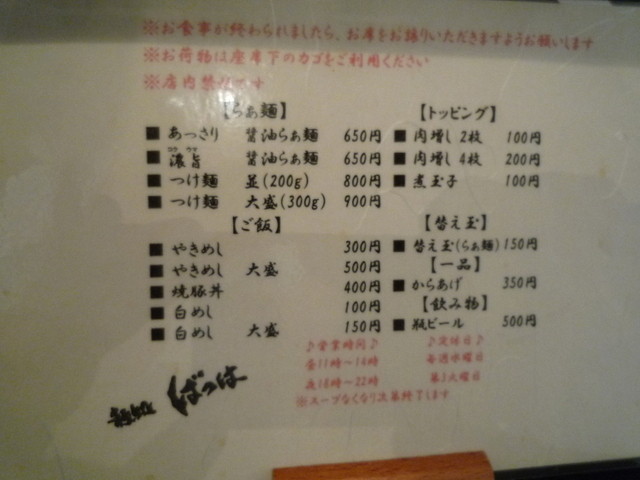 ※お食事が終わられましたら、お席をお譲りいただきますようお願いします
※お荷物は座席下のカゴをご利用ください
※店内禁煙です
【らぁ麺】
■ あっさり 醤油らぁ麺 650円
コク ウマ
■ 濃旨 醤油らぁ麺 650円
■ つけ麺 並(200g) 800円
■ つけ麺 大盛(300g) 900円
【ご飯】
■ やきめし 300円
■ やきめし 大盛 500円
■ 焼豚丼 400円
■ 白めし 100円
■ 白めし 大盛 150円
【トッピング】
■ 肉増し 2枚 100円
■ 肉増し 4枚 200円
■ 煮玉子 100円
【替え玉】
■ 替え玉(らぁ麺) 150円
【一品】
■ からあげ 350円
【飲み物】
■ 瓶ビール 500円
♪営業時間♪
昼11時～14時
夜18時～22時
♪定休日♪
毎週水曜日
第3火曜日
※スープなくなり次第終了します
ばっは